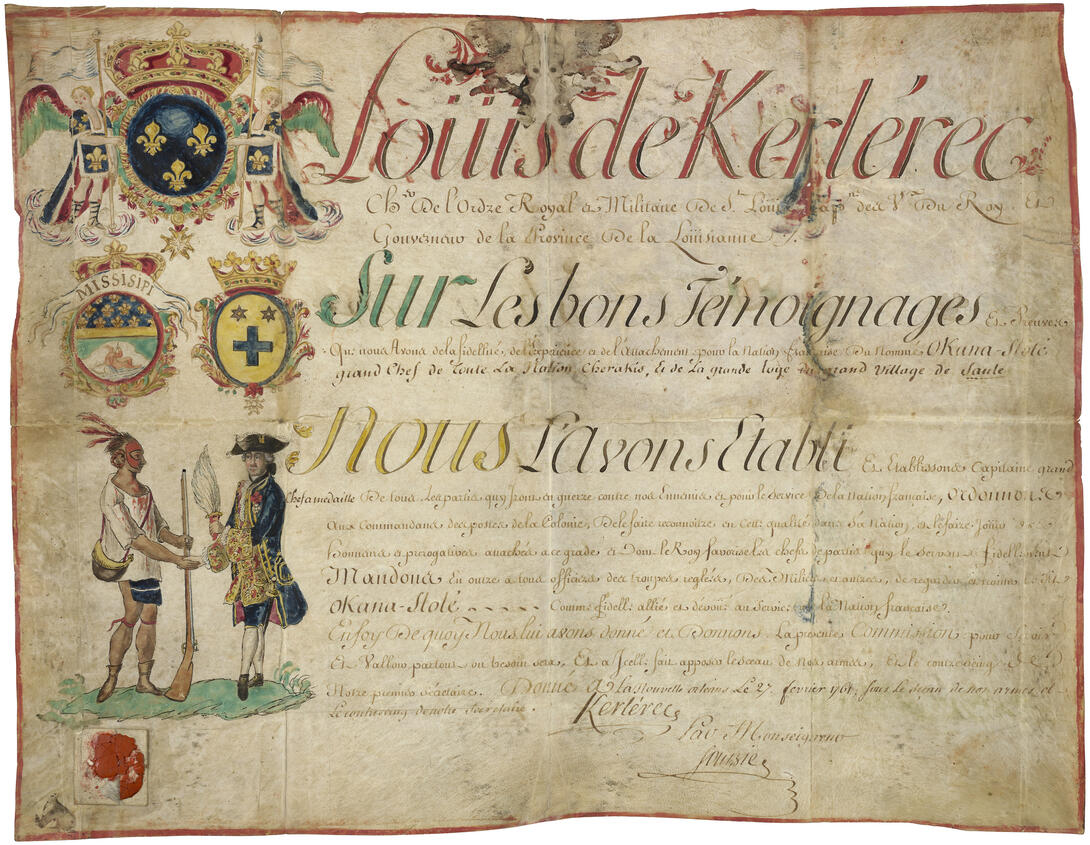 MISSISIPI
Loüis de Kerlérec
Chr. De l'Ordre Royal et Militaire De St. Loüis, Capne. des Vx. Du Roy, Et
Gouverneur de la Province De la Loüisianne
Sur Les bons Témoignages Et Preuves
Que nous Avons de la fidellité, de l'Expérience et de l'Attachement pour la Nation française Du Nommé Okana-Stoté
grand Chef de Toute La Nation Cherakis, Et de La grande loge du grand Village de Sauté
Nous L'Avons Etabli Et Etablissons Capitaine grand
Chef a medaille De tous Les partis quy iront en guerre contre nos Ennemis et pour le Service De la Nation française, Ordonnons
Aux Commandans des postes de la Colonie, De le faire reconnoitre en cette qualité dans Sa Nation, et le faire Joüir des
honneurs et prerogatives attachés a ce grade et Dont le Roy favorise les chefs de partis quy le Servent fidellement
Mandons En outre a tous officiers des troupes reglées, Des Milices et autres, de regarder et
Okana-Stoté Comme fidell allié et dévoüé au Service de la Nation française.
En foy De quoy Nous lui avons donné et Donnons La presente Commission pour
Et Valloir partout ou besoin sera, Et a Icelle fait apposer le sceau de Nos armes, et le contreseing de
Notre premier Sécetaire. Donné A la Nouvelle orleans Le 27 fevrier 1761, sous le sceau de nos armes et
Le contreseing de notre Secretaire.
Kerlérec
Par Monseigneur